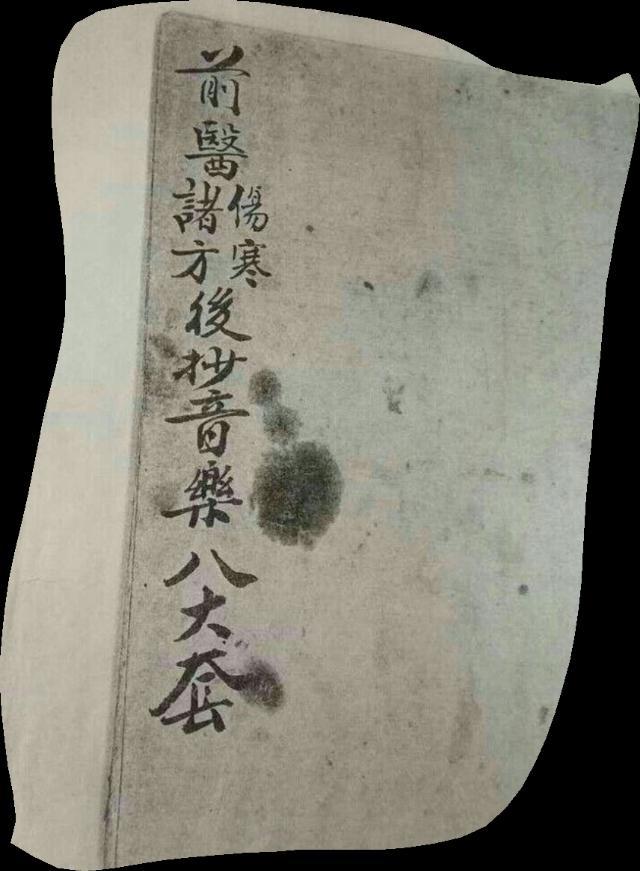 前醫諸方後抄音樂八大套
傷寒